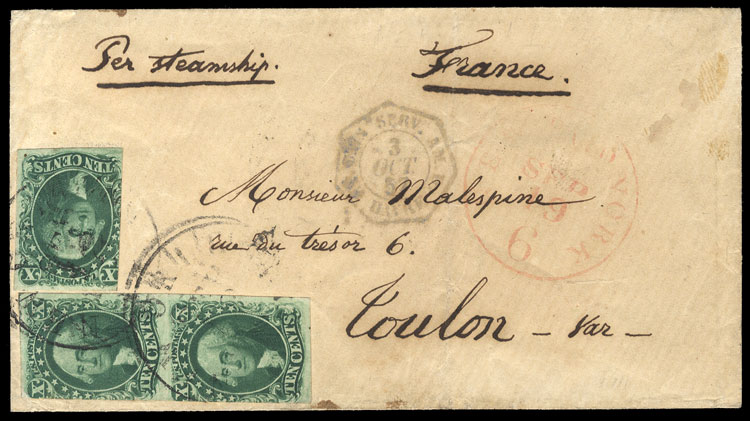 Per steamship.
France.
SERV. AM.
3
OCT
Monsieur Malespine
rue du trésor 6.
Toulon - Var -
YORK
SEP
19
6
TEN CENTS.
X X
TEN CENTS.
X X
TEN CENTS.
X X